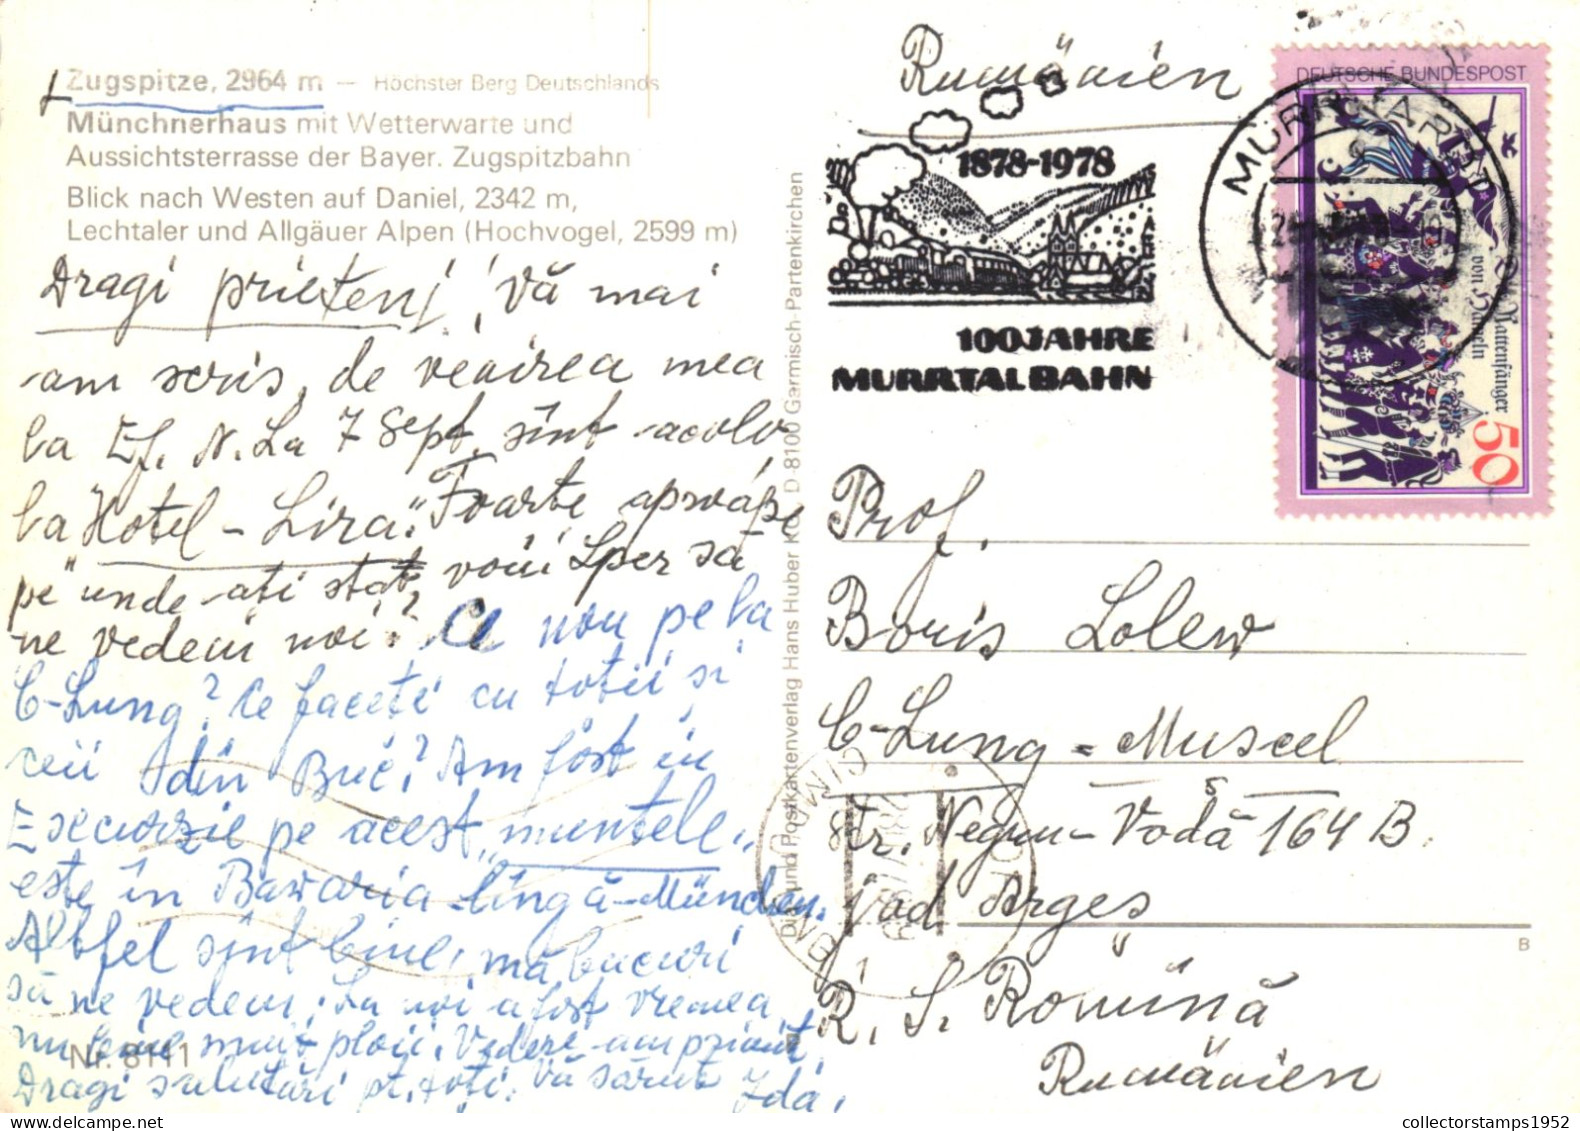 Zugspitze, 2964 m — Höchster Berg Deutschlands
Münchnerhaus mit Wetterwarte und
Aussichtsterrasse der Bayer. Zugspitzbahn
Blick nach Westen auf Daniel, 2342 m,
Lechtaler und Allgäuer Alpen (Hochvogel, 2599 m)
Dragi prieteni! Vă mai
am scris, de venirea mea
la Ef. N. La 7 Sept. sînt acolo
la "Hotel - Lira". Foarte aproape
pe unde ați stat voi! Sper să
ne vedem noi? Ce nou pe la
C-Lung? Ce faceți cu toții și
cei din Buc? Am fost în
Escursie pe acest "muntele"
este în Bawaria lîngă-München.
Altfel sînt bine, mă bucuri
să ne vedem. La noi a fost vremea
nu bine mult ploii. Vedere am primit.
Dragi salutări pt. toți. Vă sărut Ida.
Nr. 8111
Dia- und Postkartenverlag Hans Huber KG, D-8100 Garmisch-Partenkirchen
Rumänien
1878-1978
100 JAHRE
MURRTALBAHN
MURRHARDT
DEUTSCHE BUNDESPOST
Der Rattenfänger
von Hameln
50
Prof.
Boris Lolew
C-Lung - Muscel
str. Negru-Vodă 164 B.
jud Argeș
B
R. S. Romînă
Rumänien
collectorstamps1952